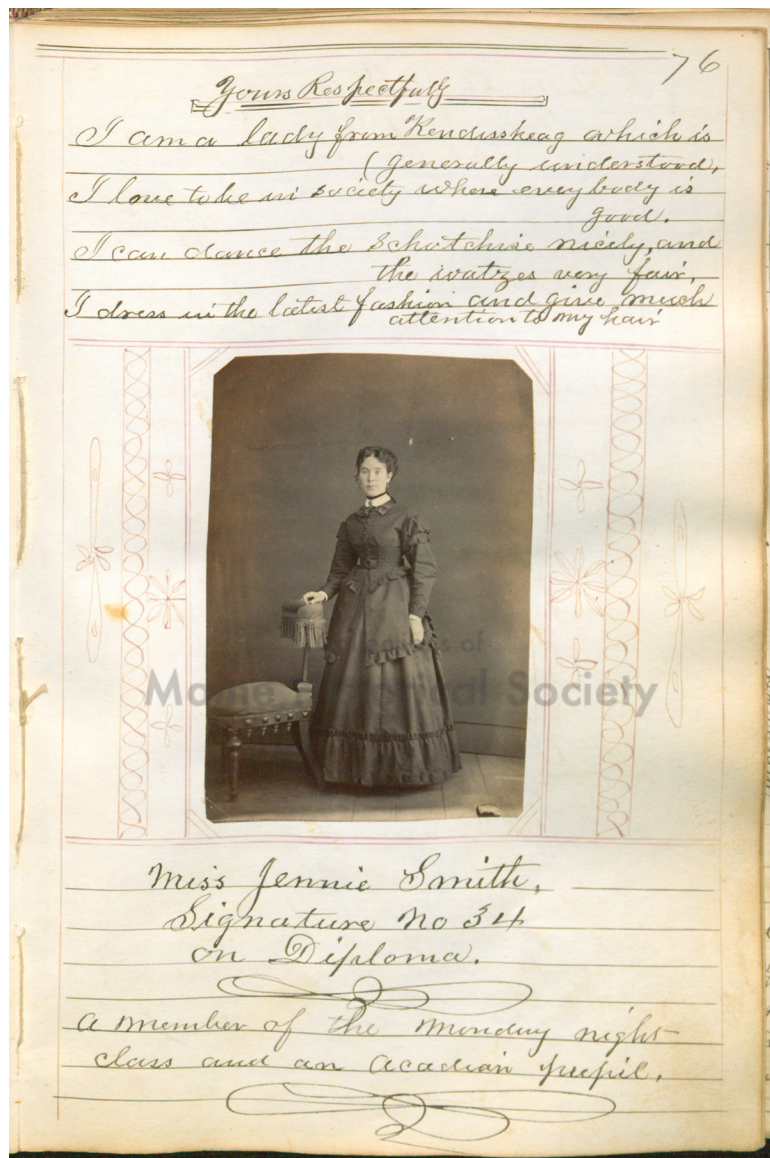 76
Yours Respectfully
I am a lady from Kenduskeag which is
(generally understood,
I love to be in society where every body is
good.
I can dance the Schotchise nicely, and
the watzes very fair,
I dress in the latest fashion and give much
attention to my hair
Collections of
Maine Historical Society
Miss Jennie Smith,
Signature No 34
on Diploma.
a member of the Monday night
class and an Acadian pupil.